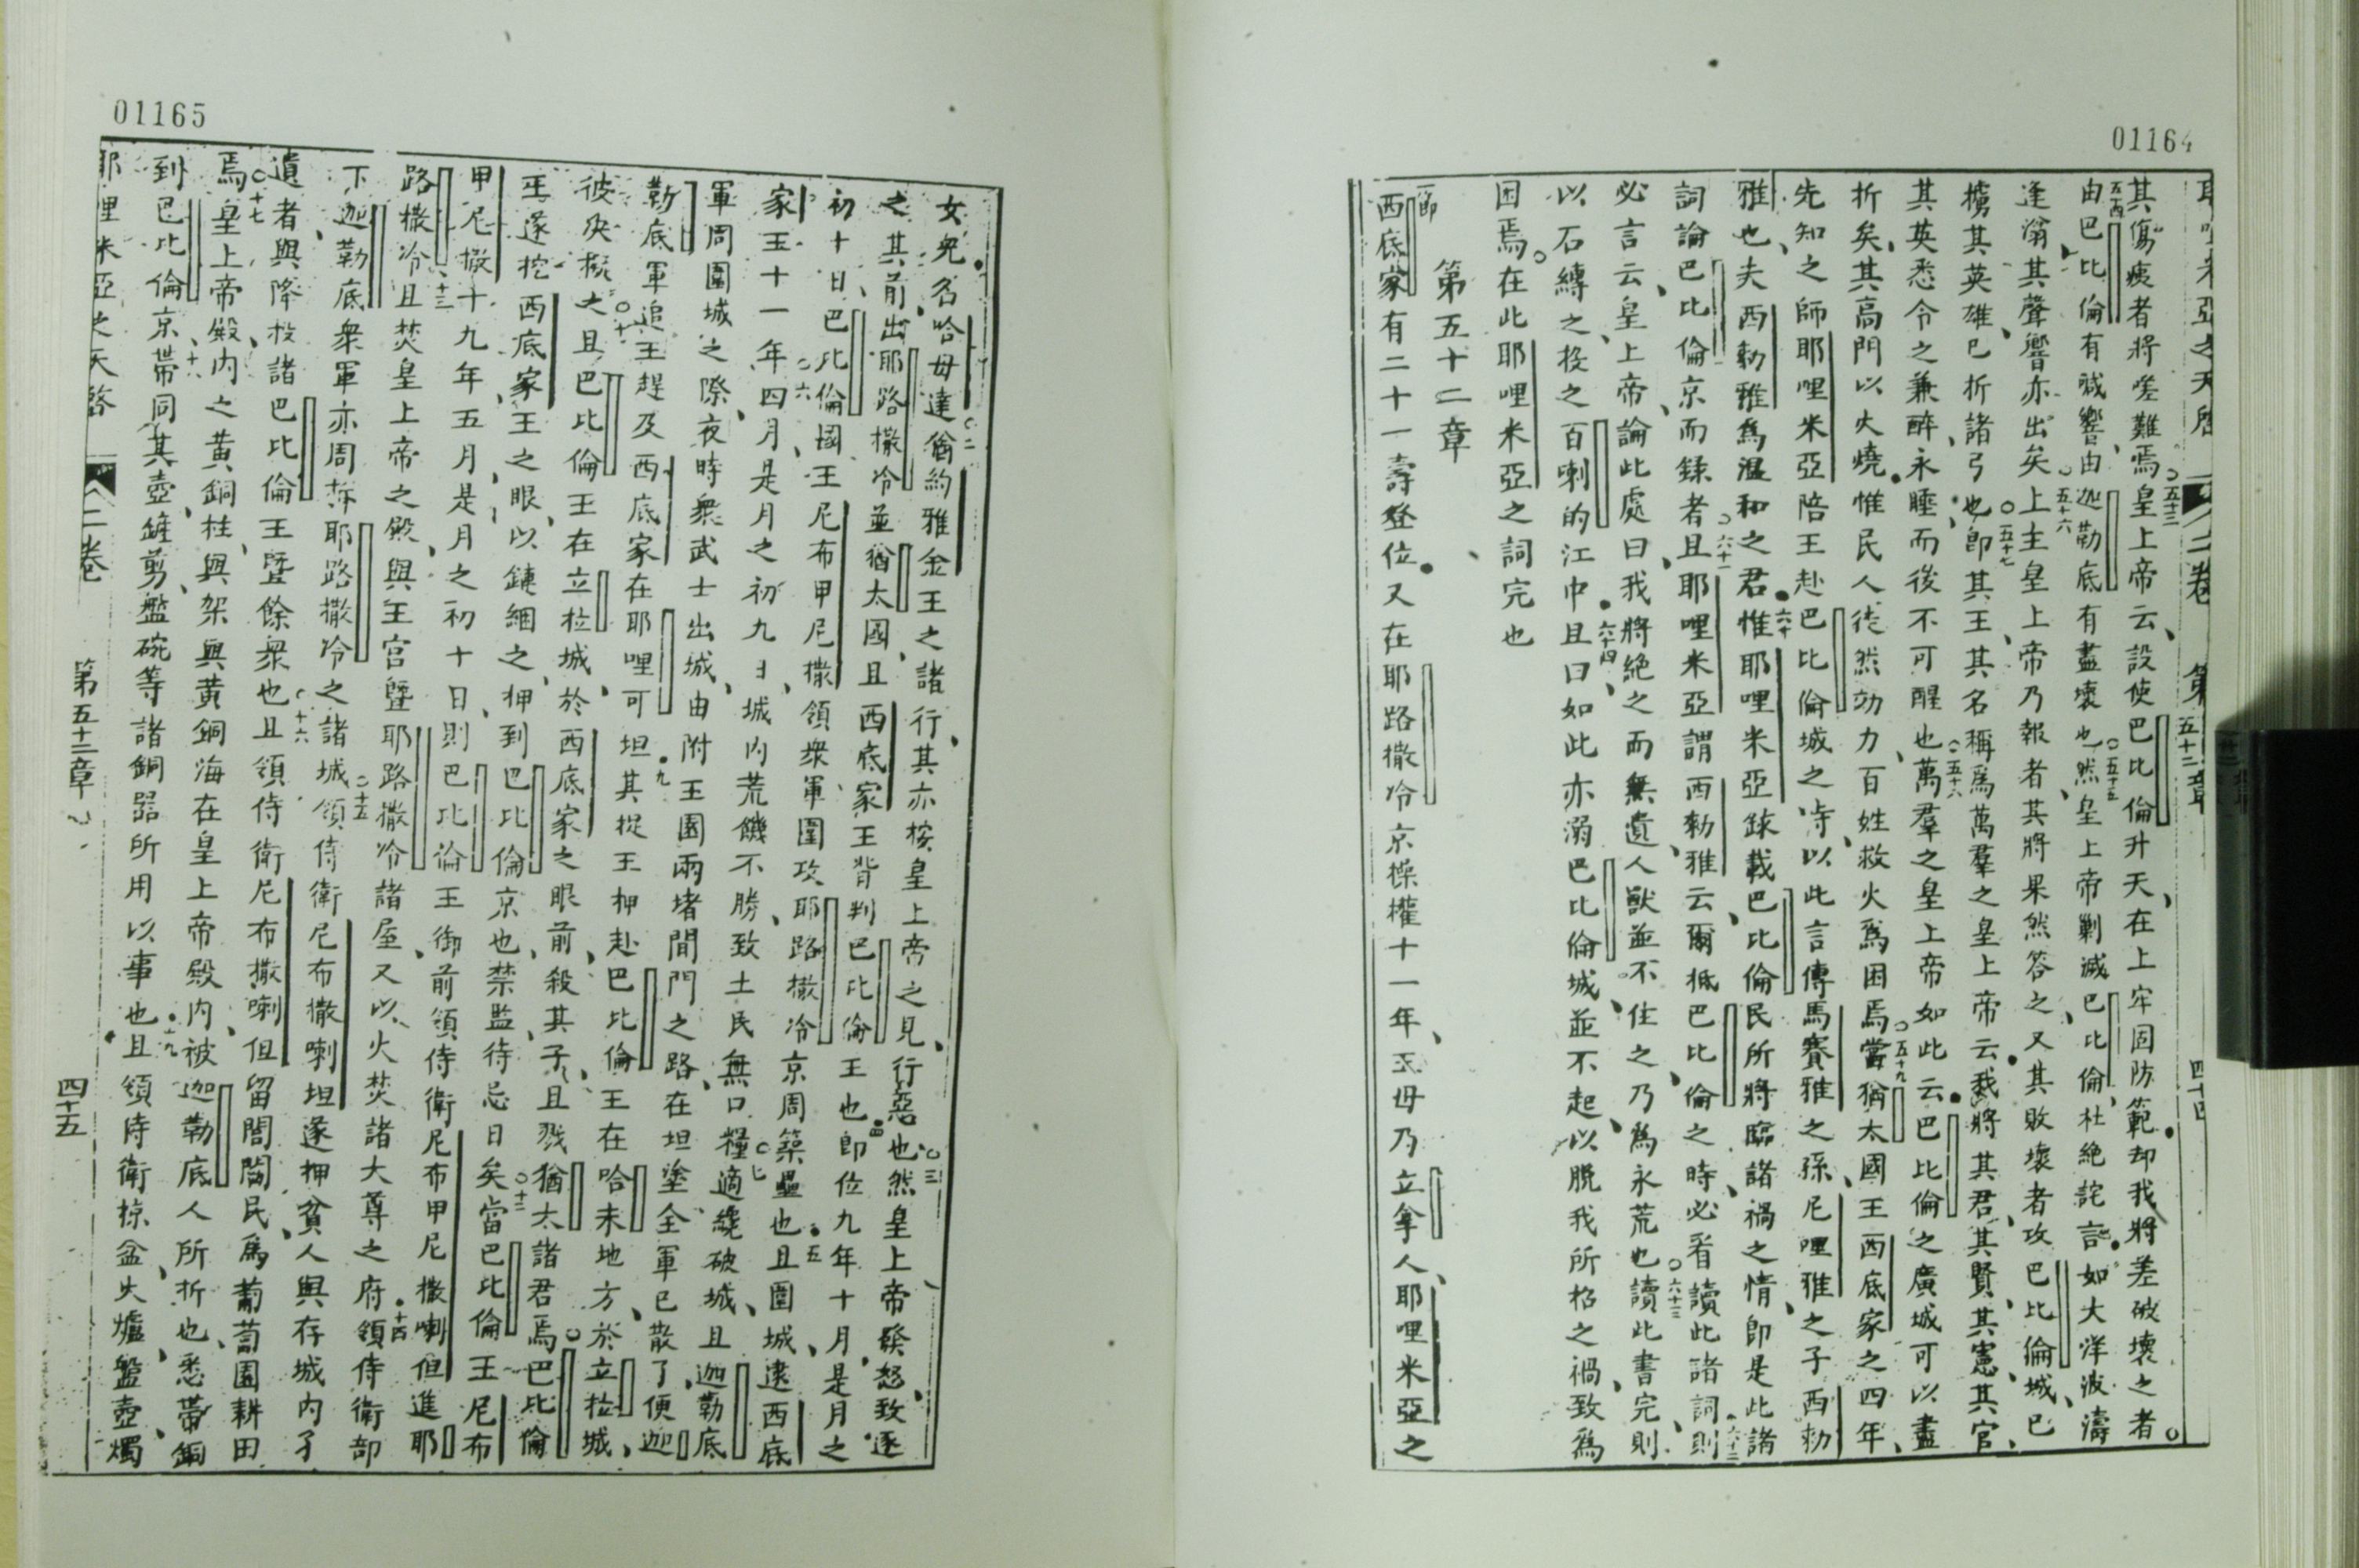 01164
耶哩米亞之天啓 二卷 第五十二章 四十四
其傷痍者將嗟難焉○五十三皇上帝云、設使巴比倫升天、在上牢固防範、却我將差破壞之者。
五十四由巴比倫有諴響、由迦勒底有盡壞也○五十五然皇上帝剿滅巴比倫、杜絕詫言、如大洋波濤
逢滃其聲響亦出矣○五十六上主皇上帝乃報者其將果然答之、又其敗壞者攻巴比倫城、巴
擄其英雄、已折諸弓也○五十七即其王、其名稱爲萬羣之皇上帝云、我將其君、其賢、其憲、其官、
其英悉令之兼醉、永睡而後不可醒也○五十八萬羣之皇上帝如此云、巴比倫之廣城可以盡
折矣、其高門以火燒、惟民人徒然効力、百姓救火爲困焉○五十九當猶太國王西底家之四年、
先知之師耶哩米亞陪王赴巴比倫城之時、以此言傳馬賽雅之孫尼哩雅之子西勑
雅也、夫西勑雅爲溫和之君、六十惟耶哩米亞錄載巴比倫民所將臨諸禍之情、即是此諸
詞論巴比倫京而錄者○六十一且耶哩米亞謂西勑雅云、爾抵巴比倫之時、必看讀此諸詞、六十二則
必言云、皇上帝論此處曰、我將絕之而無遺人獸並不住之、乃爲永荒也○六十三讀此書完、則
以石縛之、投之百喇的江中、六十四且曰、如此亦溺巴比倫城並不起、以脫我所格之禍、致爲
困焉。在此耶哩米亞之詞完也
第五十二章
一節西底家有二十一壽登位、又在耶路撒冷京操權十一年、王母乃立拿人、耶哩米亞之
01165
女兒名哈母達○二猶約雅金王之諸行、其亦按皇上帝之見、行惡也○三然皇上帝發怒、致逐
之其前、出耶路撒冷並猶太國、且西底家王背判巴比倫王也、四即位九年十月、是月之
初十日、巴比倫國王尼布甲尼撒領衆軍圍攻耶路撒冷京、周築壘也、五且圍城、逮西底
家王十一年○六四月、是月之初九日、城內荒饑不勝、致土民無口糧○七適纔破城、且迦勒底
軍周圍城之際、夜時衆武士出城、由附王園兩堵間門之路、在坦塗全軍已散了、便迦
勒底軍追王、趕及西底家在耶哩可坦、九其捉王、押赴巴比倫王在哈末地方、於立拉城、
彼決擬之○十且巴比倫王在立拉城、於西底家之眼前、殺其子、且戮猶太諸君焉○巴比倫
王遂挖西底家王之眼、以鏈綑之、押到巴比倫京也、禁監待忌日矣○十二當巴比倫王尼布
甲尼撒十九年五月、是月之初十日、則巴比倫王御前領侍衛尼布甲尼撒喇但進耶
路撒冷、十三且焚皇上帝之殿、與王宮曁耶路撒冷諸屋、又以火焚諸大尊之府、十四領侍衛部
下迦勒底衆軍亦周拆耶路撒冷之諸城○十五領侍衛尼布撒喇坦遂押貧人與存城內孑
遺者、與降投諸巴比倫王曁餘衆也○十六且領侍衛尼布撒喇但留閭閻民、爲葡萄園耕田
焉○十七皇上帝殿內之黃銅柱、與架與黃銅海在皇上帝殿內、被迦勒底人所折也、悉帶銅
到巴比倫京、十八帶同其壺、鏟剪、盤碗等諸銅器所用以事也、十九且領侍衛掠盆、火爐、盤壺、燭
耶哩米亞之天啓 二卷 第五十二章 四十五